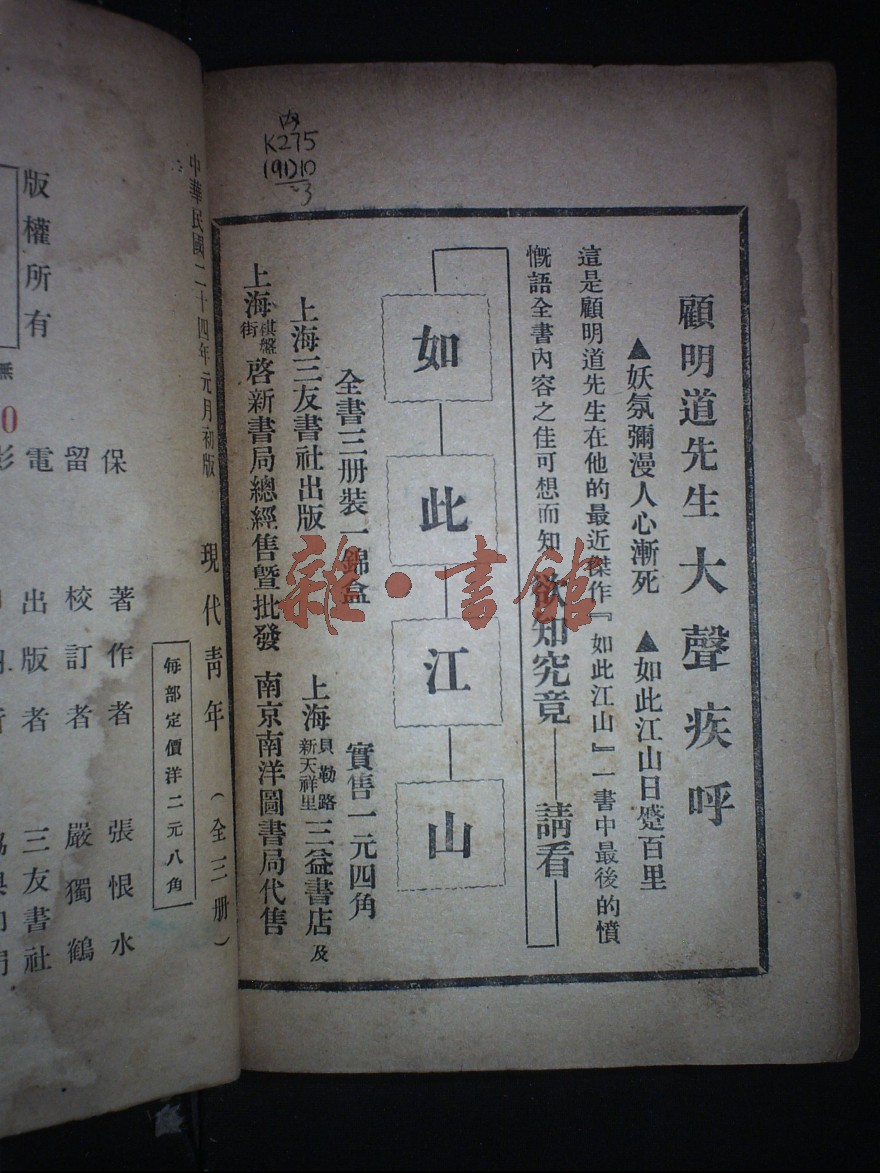 K275
(91)10
3
顧明道先生大聲疾呼
▲妖氛彌漫人心漸死　▲如此江山日蹙百里
這是顧明道先生在他的最近傑作『如此江山』一書中最後的憤
慨語全書內容之佳可想而知欲知究竟——請看
如此江山
全書三册裝一錦盒　實售一元四角
上海三友書社出版　上海貝勒路新天祥里三益書店及
上海棋盤街啓新書局總經售暨批發　南京南洋圖書局代售
雜·書館
中華民國二十四年元月初版
現代靑年（全三册）
每部定價洋二元八角
版權所有
著作者　張恨水
校訂者　嚴獨鶴
出版者　三友書社
保
留
電
0